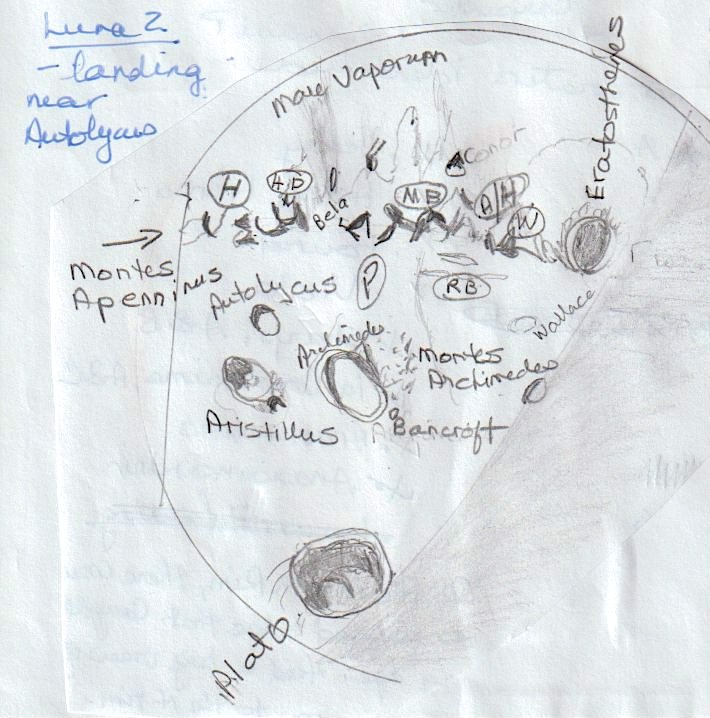 Luna 2
- landing
near
Autolycus
Mare Vaporum
Eratosthenes
Conor
H
Bela
MB
A/H
W
Montes
Apenninus
Autolycus
P
RB
Wallace
Archimedes
Montes
Archimedes
Aristillus
Bancroft
Plato